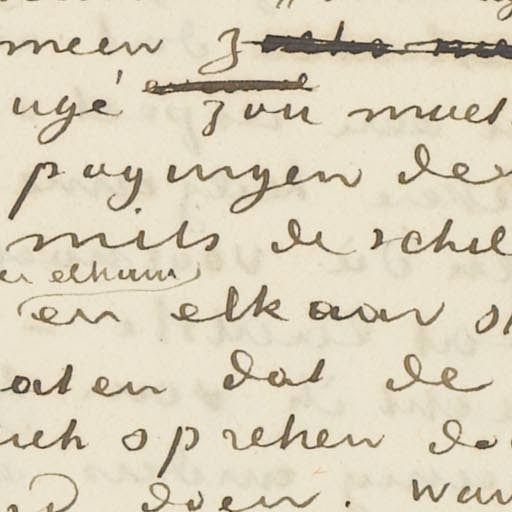 meen z
ugé zou moet
pogingen de
mits de schil
elkaar
en elkaar s
aten dat de
uch spreken do
doen. Wan